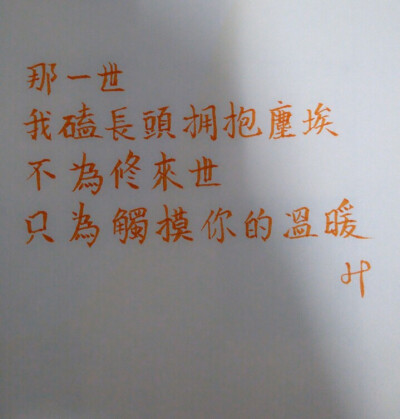 那一世
我磕長頭擁抱塵埃
不為修來世
只為觸摸你的溫暖